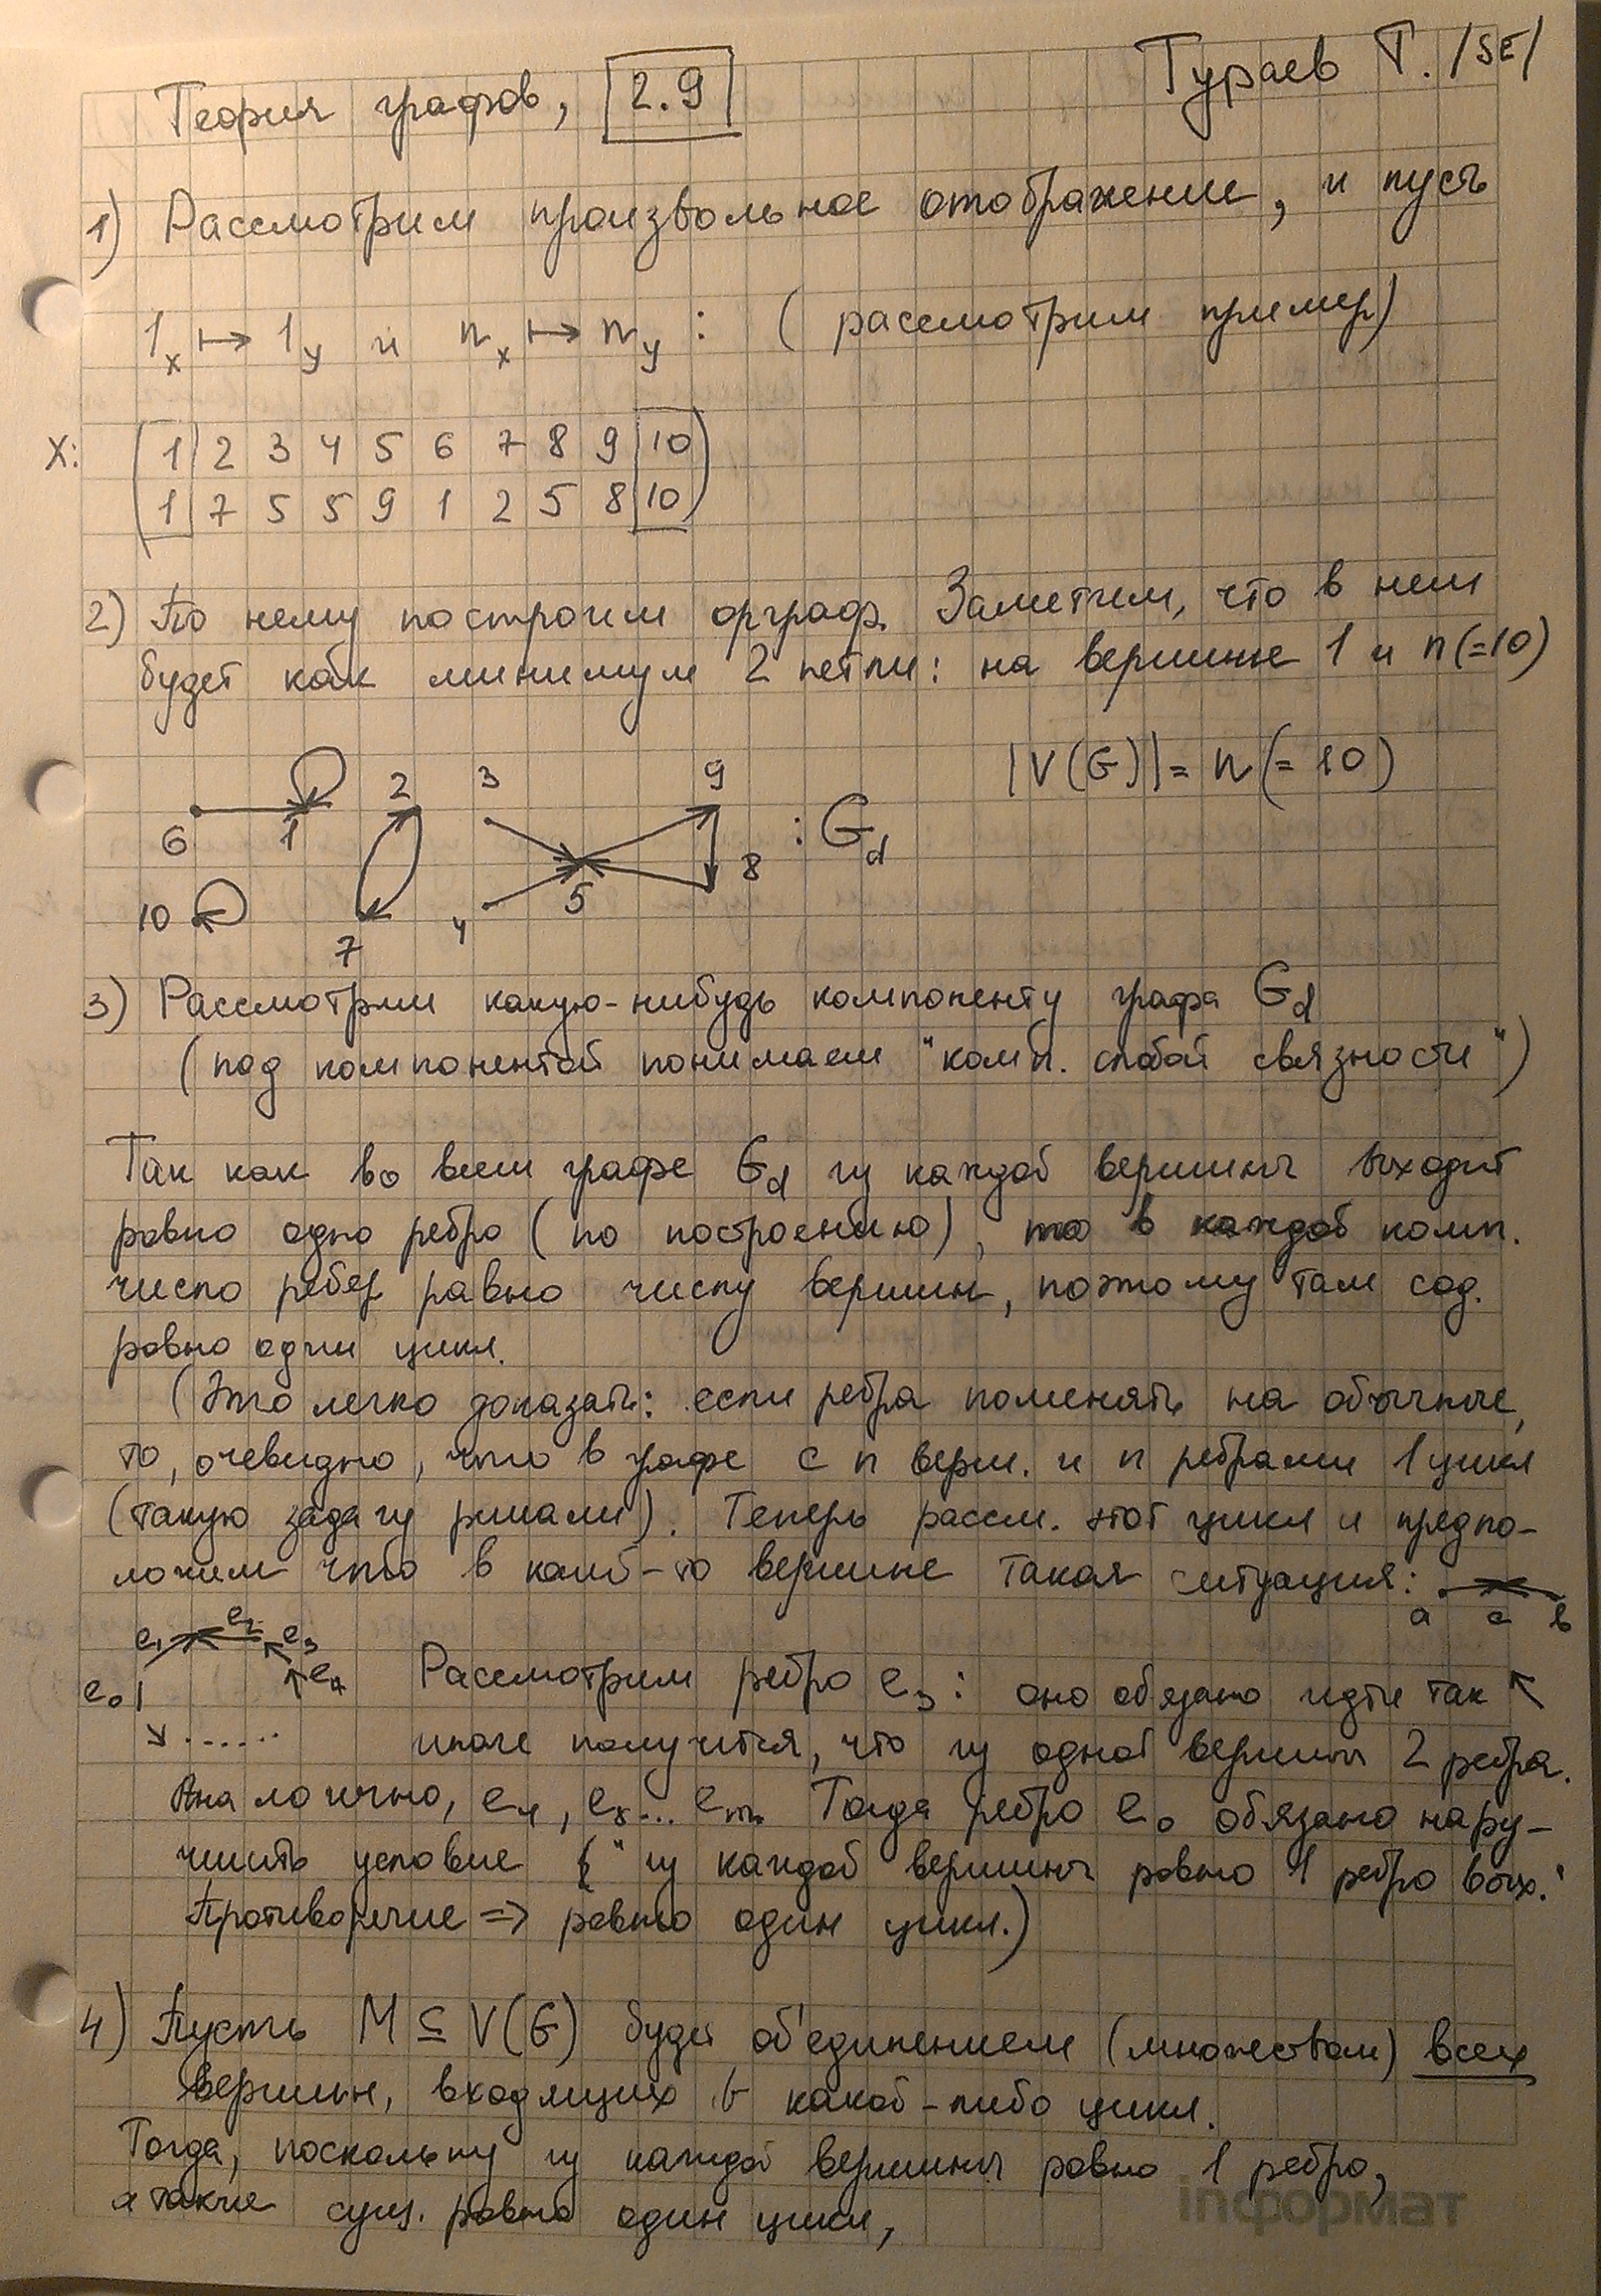 Теория графов, 2.9
Тураев Т. /SE/
1) Рассмотрим произвольное отображение, и пусть
1x ↦ 1y и nx ↦ ny : (рассмотрим пример)
X: (1 2 3 4 5 6 7 8 9 10)
(1 7 5 5 9 1 2 5 8 10)
2) По нему построим орграф. Заметим, что в нем
будет как минимум 2 петли: на вершине 1 и n(=10)
|V(G)| = n (= 10)
6 1 2 3 9 : Gd
10 7 4 5 8
3) Рассмотрим какую-нибудь компоненту графа Gd
(под компонентой понимаем "комп. слабой связности")
Так как во всем графе Gd из каждой вершины выходит
ровно одно ребро (по построению), то в каждой комп.
число ребер равно числу вершин, поэтому там сод.
ровно один цикл.
(Это легко доказать: если ребра поменять на обычные,
то, очевидно, что в графе с n верш. и n ребрами 1 цикл
(такую задачу решали). Теперь рассм. этот цикл и предпо-
ложим что в какой-то вершине такая ситуация:
a c b
e1 e2 e3
e0 e4 Рассмотрим ребро e3: оно обязано идти так ↖
...... иначе получится, что из одной вершины 2 ребра.
Аналогично, e4, e5... em. Тогда ребро e0 обязано нару-
шить условие "из каждой вершины ровно 1 ребро вых."
Противоречие => ровно один цикл.)
4) Пусть M ⊆ V(G) будет об'единением (множеством) всех
вершин, входящих в какой-либо цикл.
Тогда, поскольку из каждой вершины ровно 1 ребро,
а также сущ. ровно один цикл,
inформат